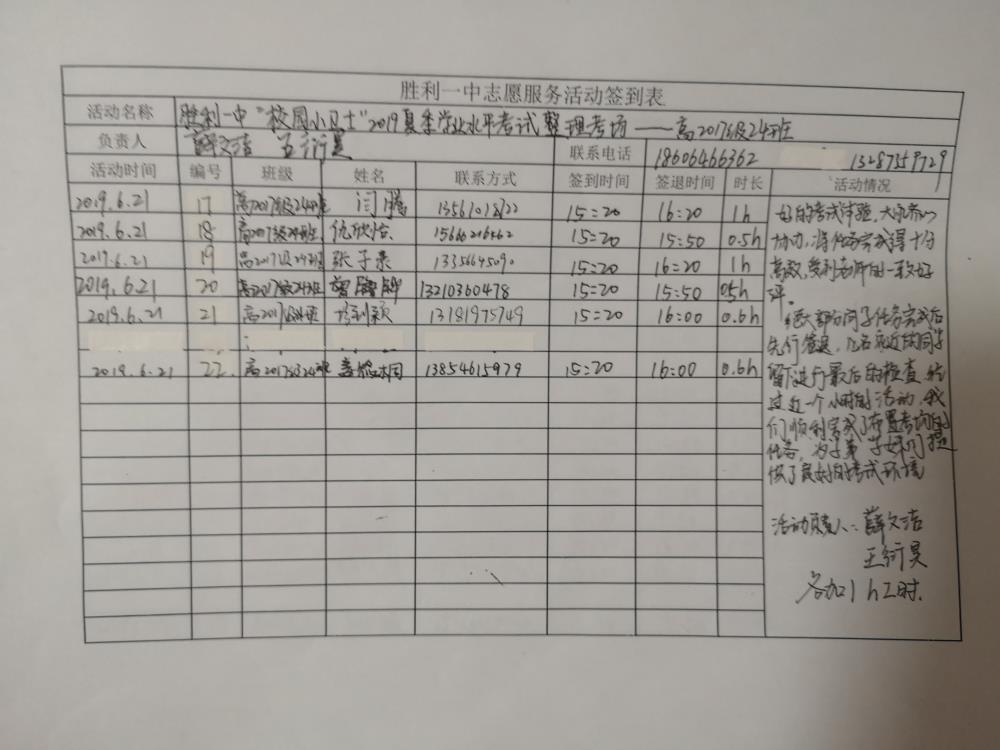 胜利一中志愿服务活动签到表
活动名称 胜利一中"校园小卫士"2019夏季学业水平考试整理考场——高2017级24班
负责人 薛文洁 王衍昊 联系电话 18606466362 13287559729
活动时间 编号 班级 姓名 联系方式 签到时间 签退时间 时长 活动情况
2019.6.21 17 高2017级24班 闫腾 15:20 16:20 1h
2019.6.21 18 高2017级24班 15:20 15:50 0.5h
2019.6.21 19 高2017级24班 张子录 15:20 16:20 1h
2019.6.21 20 高2017级24班 13210360478 15:20 15:50 0.5h
2019.6.21 21 13181975749 15:20 16:00 0.6h
2019.6.21 22 高2017级24班 15:20 16:00 0.6h
好的考试体验,大家齐心
协力,将任务完成得十分
高效,受到老师的一致好
评。
绝大部分同学任务完成后
先行签退,几名就近的同学
留下进行最后的检查,经
过近一个小时的活动,我
们顺利完成了布置考场的
任务,为学弟学妹们提
供了良好的考试环境
活动负责人:薛文洁
王衍昊
各加1h工时.